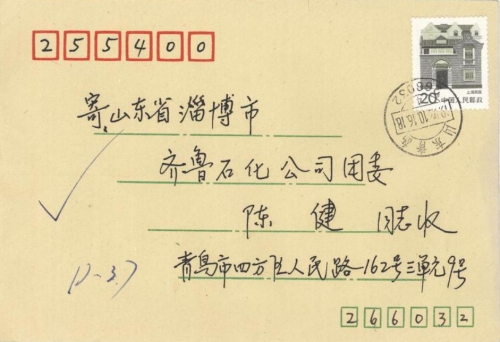 255400
上海民居
20 中国人民邮政
寄 山东省淄博市
齐鲁石化公司团委
陈健 同志收
青岛市四方区人民路162号三单元9号
12-3.7
266032